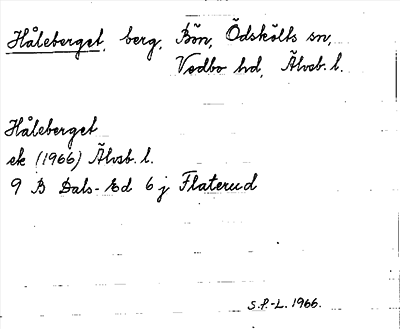 Håleberget, berg, Bön, Ödskölts sn,
Vedbo hd, Älvsb. l.
Håleberget
ek (1966) Älvsb. l.
9 B Dals-Ed 6 j Flaterud
S.F.-L. 1966.